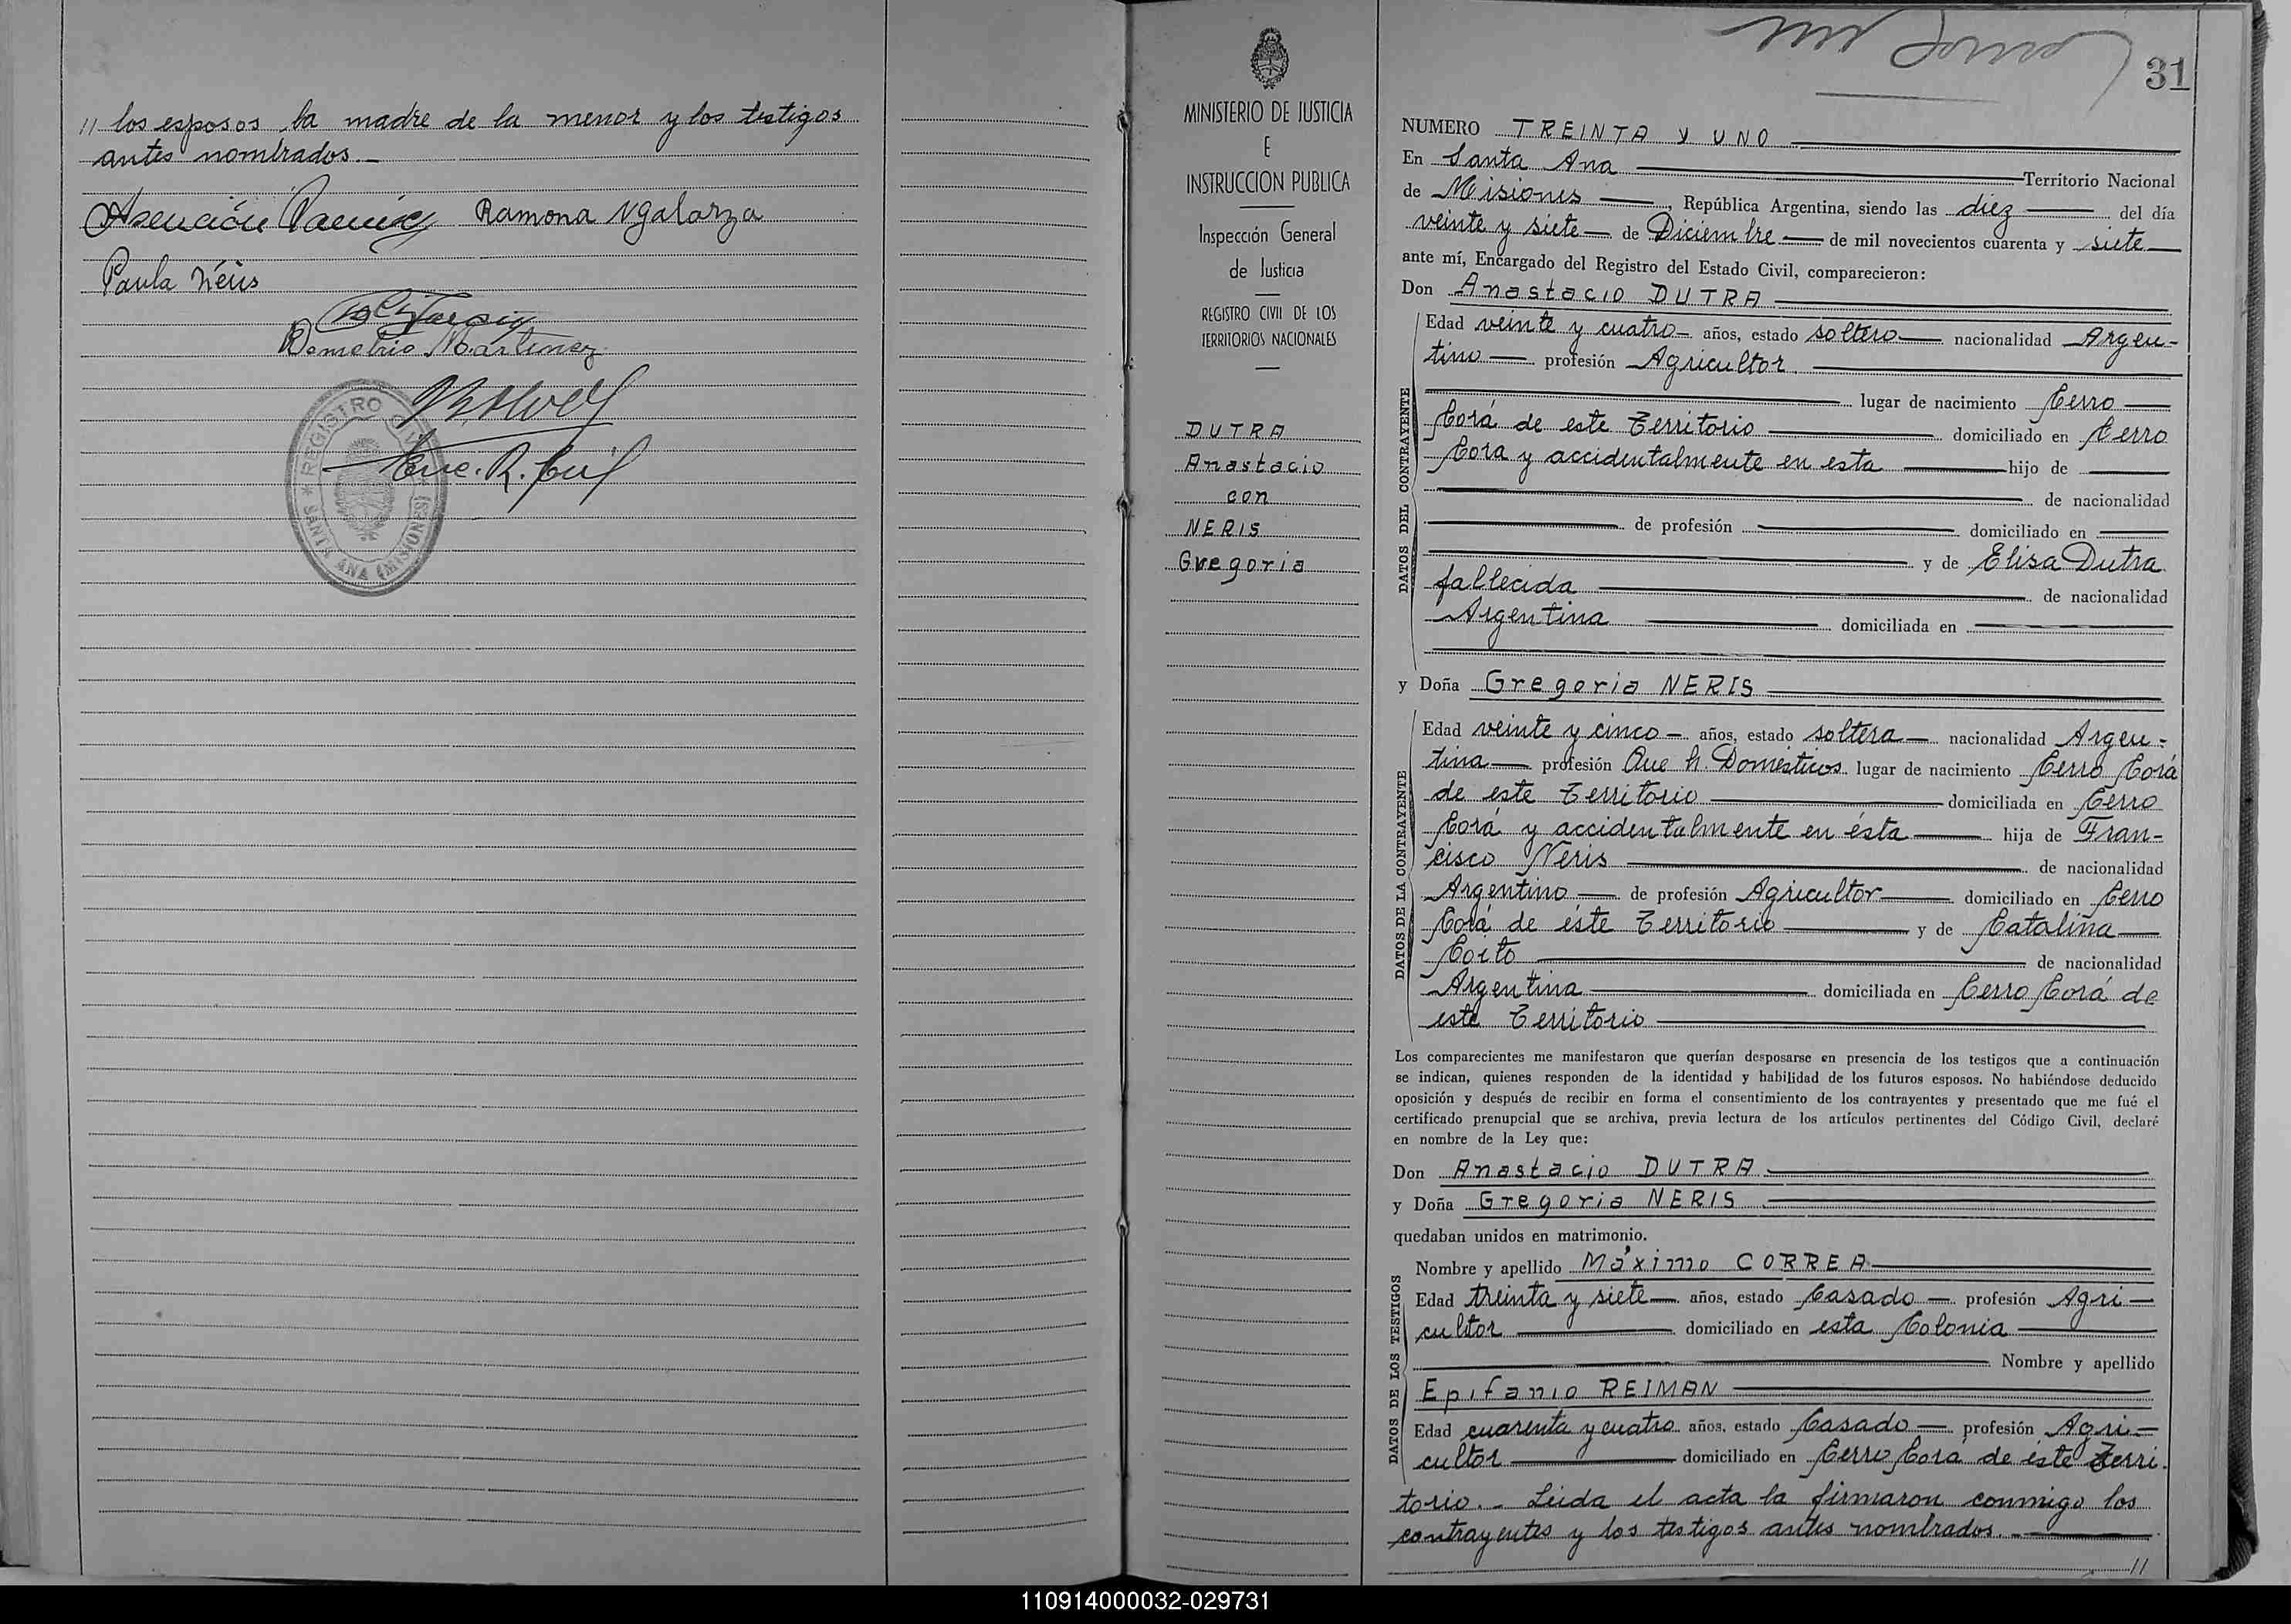 // los esposos, la madre de la menor y los testigos
antes nombrados.—
Ramona N galarza
Paula
Demetrio Martinez
Enc. R. Civil
* REGISTRO CIVIL * SANTA ANA (MISIONES)
MINISTERIO DE JUSTICIA
E
INSTRUCCION PUBLICA
Inspección General
de Justicia
REGISTRO CIVIL DE LOS
TERRITORIOS NACIONALES
DUTRA
Anastacio
con
NERIS
Gregoria
31
NUMERO TREINTA y UNO
En Santa Ana Territorio Nacional
de Misiones, República Argentina, siendo las diez del día
veinte y siete de Diciembre de mil novecientos cuarenta y siete
ante mí, Encargado del Registro del Estado Civil, comparecieron:
Don Anastacio DUTRA
DATOS DEL CONTRAYENTE
Edad veinte y cuatro años, estado soltero nacionalidad Argen-
tino profesión Agricultor.
lugar de nacimiento Cerro
Corá de este Territorio domiciliado en Cerro
Cora y accidentalmente en esta hijo de
de nacionalidad
de profesión domiciliado en
y de Elisa Dutra
fallecida de nacionalidad
Argentina domiciliada en
y Doña Gregoria NERIS
DATOS DE LA CONTRAYENTE
Edad veinte y cinco años, estado soltera nacionalidad Argen-
tina profesión Que h. Domésticos lugar de nacimiento Cerro Corá
de este Territorio domiciliada en Cerro
Corá y accidentalmente en ésta hija de Fran-
cisco Neris de nacionalidad
Argentino de profesión Agricultor domiciliado en Cerro
Corá de éste Territorio y de Catalina
Coito de nacionalidad
Argentina domiciliada en Cerro Corá de
este Territorio
Los comparecientes me manifestaron que querían desposarse en presencia de los testigos que a continuación
se indican, quienes responden de la identidad y habilidad de los futuros esposos. No habiéndose deducido
oposición y después de recibir en forma el consentimiento de los contrayentes y presentado que me fué el
certificado prenupcial que se archiva, previa lectura de los artículos pertinentes del Código Civil, declaré
en nombre de la Ley que:
Don Anastacio DUTRA
y Doña Gregoria NERIS
quedaban unidos en matrimonio.
DATOS DE LOS TESTIGOS
Nombre y apellido Máximo CORREA
Edad treinta y siete años, estado Casado profesión Agri-
cultor domiciliado en esta Colonia
Nombre y apellido
Epifanio REIMAN
Edad cuarenta y cuatro años, estado Casado profesión Agri-
cultor domiciliado en Cerro Corá de éste Terri-
torio.- Leida el acta la firmaron conmigo los
contrayentes y los testigos antes nombrados.—
//
110914000032-029731